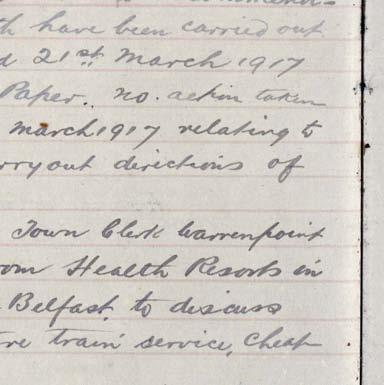 th have been carried out
d 21st March 1917
Paper. no action taken
March 1917 relating to
rry out directions of
Town Clerk Warrenpoint
om Health Resorts in
Belfast to discuss
re train service, Cheap